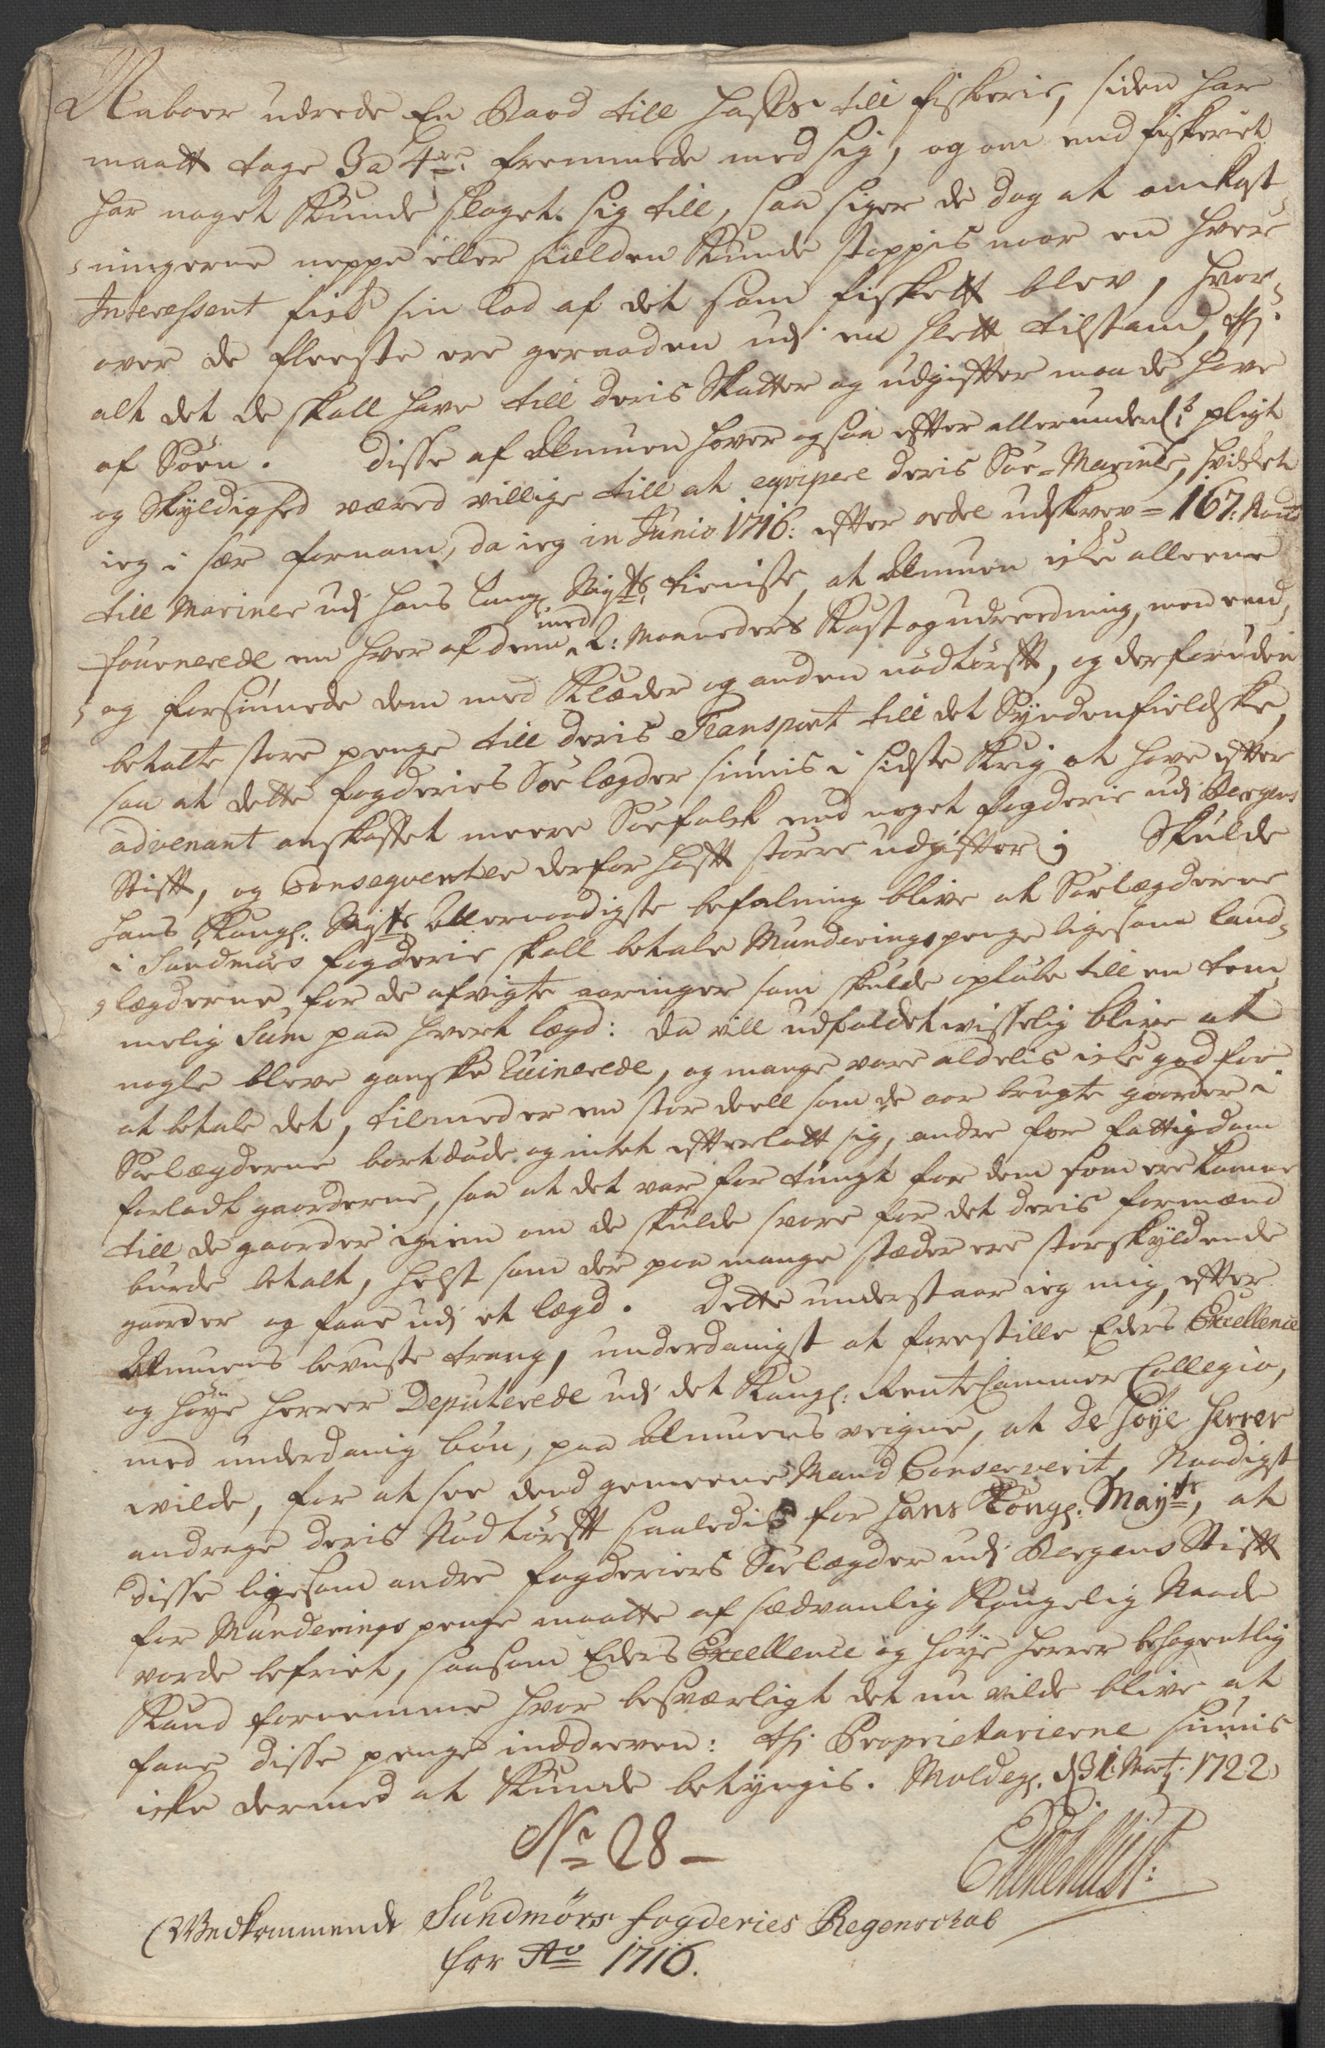 Naboer udrede En Baad till hafs till fiskerie, siden har
maatt tage 3 a 4re fremmede med sig, og om end fiskeriet
har noget Kunde slaget sig till, saa siger de dog at omkost-
ningerne neppe eller sielden Kunde stoppis naar en hver
Interessent fick sin lod af det som fiskett blev, hvor-
over de fleeste ere geraaden udj en slett tilstand, thj
alt det de skall have till deris Skatter og udgiffter maa de have
af Söen. Disse af Almuen haver ogsaa effter allerunderd:st pligt
og Skyldighed væred villige till at eqvipere deris Söe-Mariner, hvilket
ieg i sær fornam, da ieg in Junio 1716: effter ordre udskrev = 167: Mand
till Mariner udj Hans Kong: Mayts tieniste, at Almuen icke alleene
fournerede en hver af dem med 2: Maaneders Kost og udreedning, men end
og forsiunede dem med Klæder og anden nödtörfft, og derforuden
betalte store penge till deris Transport till det Syndenfieldske,
saa at dette fogderies Söe lægder siunis i sidste Krig at have effter
advenant anskaffet meere Söefolck end noget fogderie udj Bergens
Stifft, og Conseqventer derfor hafft större udgiffter; Skulde
Hans Kongl: Mayts Allernaadigste befalning blive at Söelægderne
i Sundmörs fogderie skall betale Munderings penge ligesom land-
lægderne for de afvigte aaringer som skulde opløbe till en tem-
melig Sum paa hvert lægd: da vill udfaldet wisselig blive at
nogle bleve ganske Ruinerede, og mange vare aldelis icke god for
at betale det, tilmed er en stor deell som de aar brugte gaarder i
Söelægderne bortdøde og intet effterladt sig, andre for fattigdom
forladt gaarderne, saa at det var for tungt for dem som ere komne
till de gaarder igien om de skulde svare for det deris formænd
burde betalt, helst som der paa mange stæder ere storskyldende
gaarder og faae udj et lægd. Dette understaar ieg mig, effter
Almuens bevuste trang, underdanigst at forestille Eders Excellence
og höye Herrer Deputerede udj det Kongl: RenteCammer Collegio,
med underdanig bön, paa Almuens veigne, at De Höye Herrer
wilde, for at see dend gemeene Mand Conserverit, Naadigst
andrage deris Nödtörfft saaledis for Hans Kongl: Mayts, at
disse ligesom andre fogderiers Söelægder udj Bergens Stifft
for Munderings penge maatte af sædvanlig Kongelig Naade
vorde befriet, saasom Eders Excellence og höye Herrer behagentlig
Kand fornemme hvor besværligt det nu vilde blive at
faae disse penge inddreven: thj Proprietarierne siunis
icke dermed at Kunde betyngis. Moldeg. d 31 Marty: 1722
No 28 -
Vedkommende Sundmörs fogderies Regenschab
for Ao 1716.